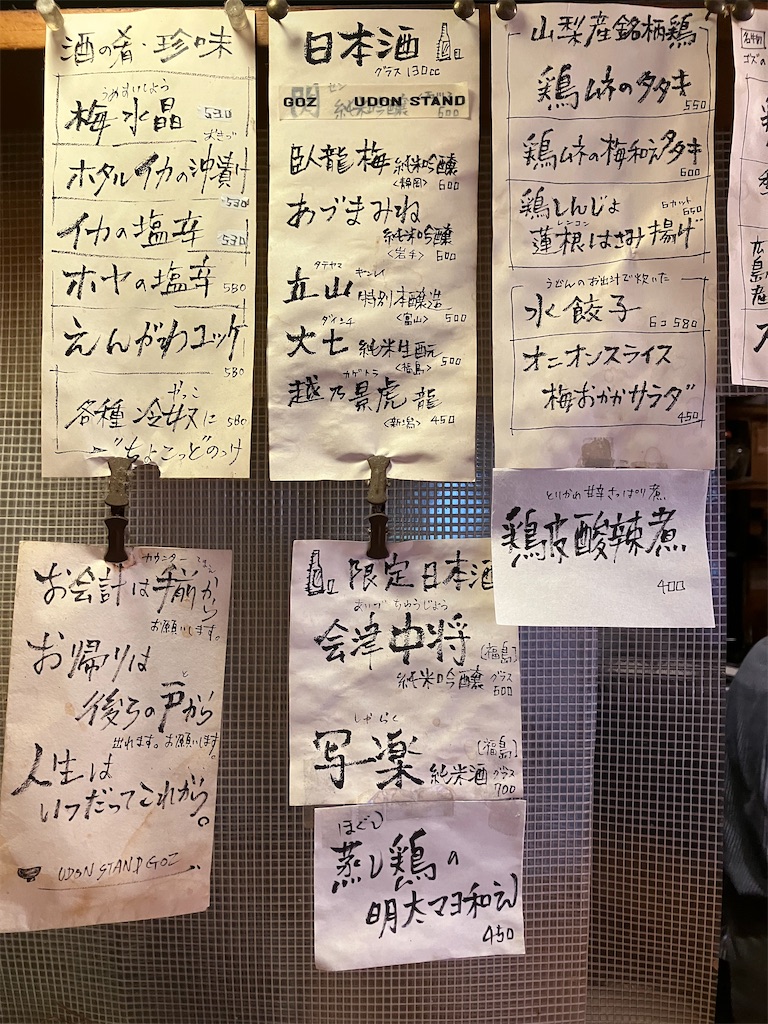 酒の肴・珍味
うめすいしょう
梅水晶 530
ホタルイカの沖漬け
530
イカの塩辛 530
ホヤの塩辛 580
えんがわユッケ
580
やっこ
各種 冷奴に 580
ちょこっとのっけ
日本酒
グラス 130cc
GOZ UDON STAND
純米吟醸
600
臥龍梅 純米吟醸
<静岡> 600
あづまみね
純米吟醸
<岩手> 600
タテヤマ ギンレイ
立山 特別本醸造
<富山> 500
ダイシチ
大七 純米生酛
<福島> 500
カゲトラ
越乃景虎 龍
<新潟> 450
山梨産銘柄鶏
鶏ムネのタタキ
550
鶏ムネの梅和えタタキ
600
鶏しんじょ 6カット 650
レンコン
蓮根はさみ揚げ
うどんのお出汁で炊いた
水餃子
6コ 580
オニオンスライス
梅おかかサラダ
450
とりかわ甘辛さっぱり煮
鶏皮酸辣煮
400
カウンター
お会計は手前から
お願いします。
お帰りは
と
後ろの戸から
出れます。お願いします。
人生は
いつだってこれから。
UDON STAND GOZ
限定日本酒
あいづ ちゅうじょう
会津中将 [福島]
純米吟醸 グラス
600
しゃらく
写楽 [福島]
純米酒 グラス
700
ほぐし
蒸し鶏の
明太マヨ和え
450